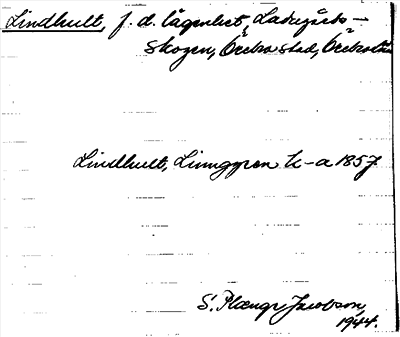 Lindhult, f. d. lägenhet, Ladugårds-
skogen, Örebro stad, Örebro län
Lindhult, Linngren k-a 1857
S. Jacobson
1944.